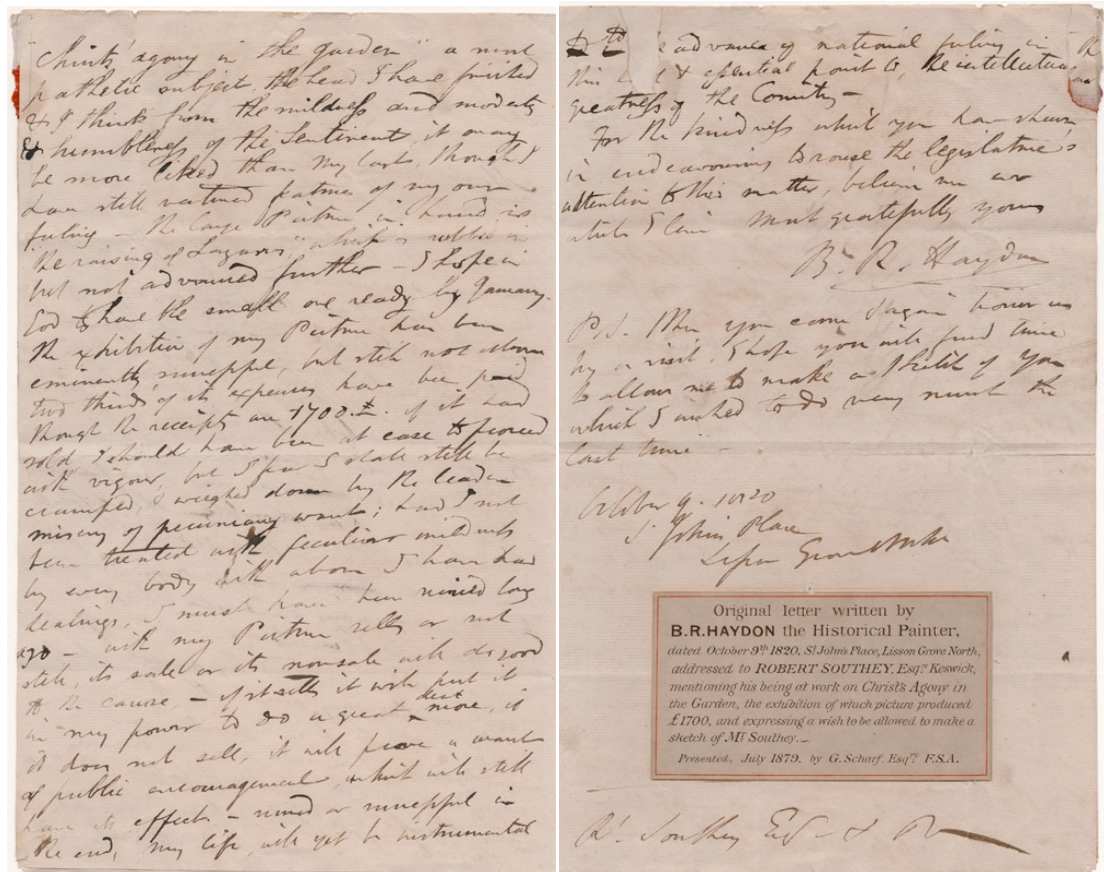 "Christ's agony in the garden" a most
pathetic subject, the head I have finished
& I think from the mildness and modesty
& humbleness of the Sentiment, it may
be more liked than my last, though I
have still ventured features of my own
feeling — The large Picture in hand is
"the raising of Lazarus," which is rubbed in
but not advanced further — I hope in
God to have the small one ready by January.
The exhibition of my Picture has been
eminently successful, but still not above
two thirds of its expences have been paid
though the receipts are 1700.£. if it had
sold I should have been at ease to proceed
with vigour, but I fear I shall still be
cramped, & weighed down by the leaden
misery of pecuniary want; had I not
been treated with peculiar mildness
by every body with whom I have had
dealings, I must have been ruined long
ago — with my Picture sells or not
still, its sale or its nonsale will do good
to the cause, — if it sells it will put it
in my power to do a great deal more, if
it does not sell, it will prove a want
of public encouragement, which will still
have its effect — ruined or successful in
the end, my life will yet be instrumental
to advance of national feeling in
this & essential point to, the intellectual
greatness of the Country —
For the kindness which you have shewn
in endeavouring to rouse the legislature's
attention to this matter, believe me ever
while I live most gratefully yours
B. R. Haydon
P.S. When you come again honor us
by a visit. I hope you will find time
to allow me to make a Sketch of you
which I wished to do very much the
last time —
October 9. 1820
St Johns Place
Lisson Grove North
Original letter written by
B.R.HAYDON the Historical Painter,
dated October 9th 1820, St John's Place, Lisson Grove North,
addressed to ROBERT SOUTHEY, Esqre Keswick,
mentioning his being at work on Christ's Agony in
the Garden, the exhibition of which picture produced
£1700, and expressing a wish to be allowed to make a
sketch of Mr Southey._
Presented, July 1879, by G. Scharf, Esqre F.S.A.
Rt Southey Esq — &